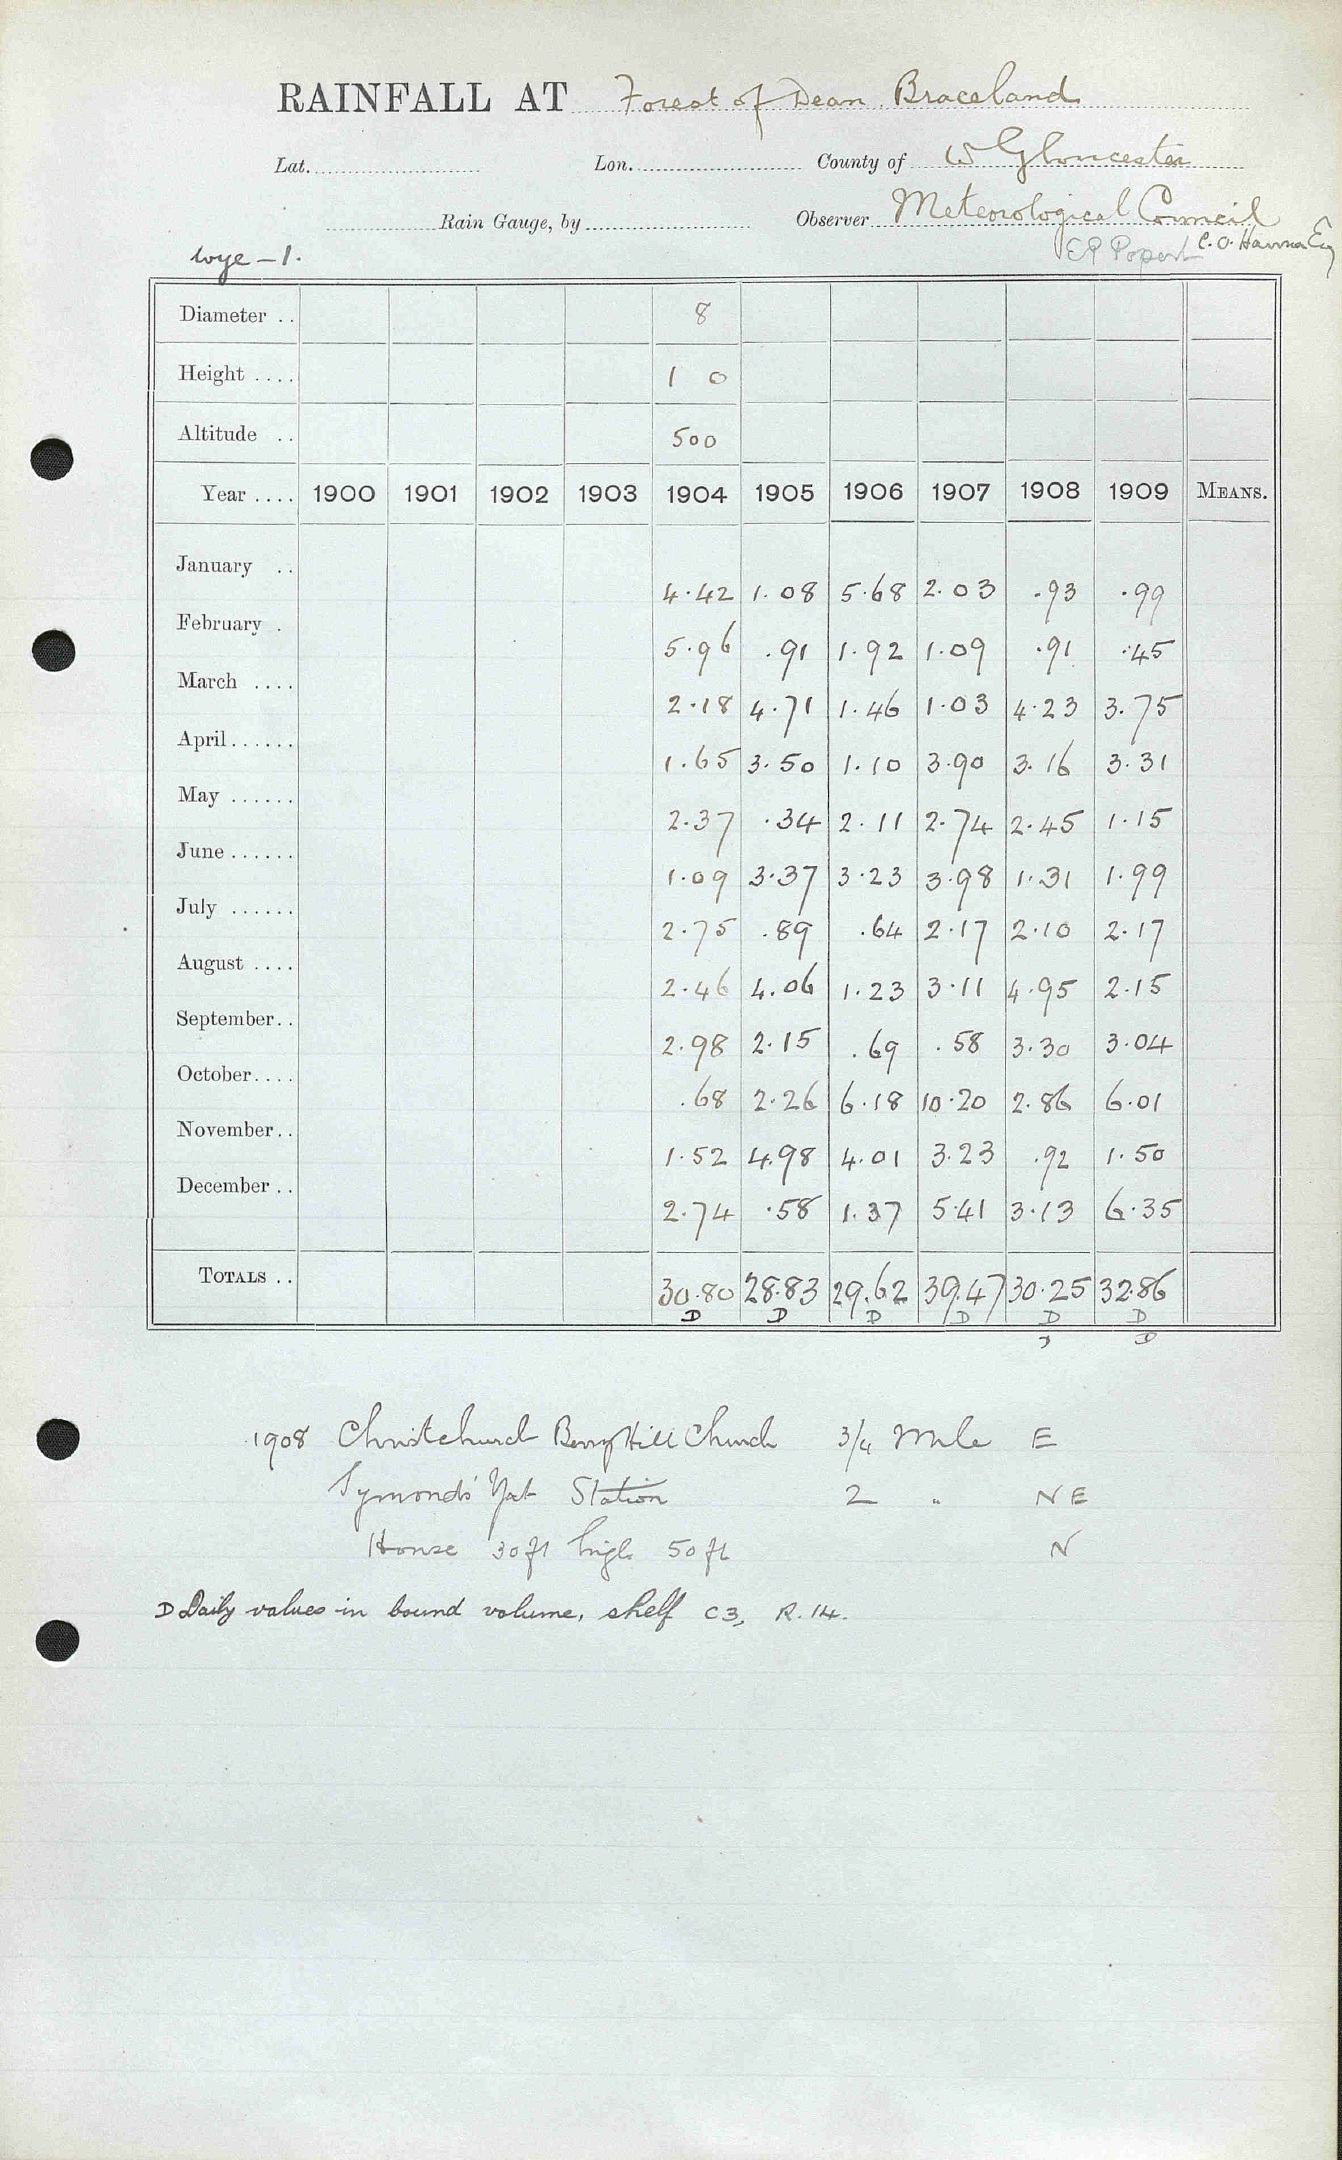 RAINFALL AT Forest of Dean Braceland
Lat. Lon. County of W Gloucester
Rain Gauge, by Observer Meteorological Council
Wye – 1. EP Popert C. O. Esq
Diameter .. 8
Height .... 1 0
Altitude .. 500
Year .... 1900 1901 1902 1903 1904 1905 1906 1907 1908 1909 MEANS.
January .. 4.42 1.08 5.68 2.03 .93 .99
February . 5.96 .91 1.92 1.09 .91 .45
March .... 2.18 4.71 1.46 1.03 4.23 3.75
April ...... 1.65 3.50 1.10 3.90 3.16 3.31
May ...... 2.37 .34 2.11 2.74 2.45 1.15
June ...... 1.09 3.37 3.23 3.98 1.31 1.99
July ...... 2.75 .89 .64 2.17 2.10 2.17
August .... 2.46 4.06 1.23 3.11 4.95 2.15
September.. 2.98 2.15 .69 .58 3.30 3.04
October.... .68 2.26 6.18 10.20 2.86 6.01
November.. 1.52 4.98 4.01 3.23 .92 1.50
December .. 2.74 .58 1.37 5.41 3.13 6.35
TOTALS .. 30.80 28.83 29.62 39.47 30.25 32.86
D D D D D D
D D
1908 Christchurch Berry Hill Church 3/4 Mile E
Symonds' Yat Station 2 " NE
House 30 ft high 50 ft N
D Daily values in bound volume, shelf C3, R.14.